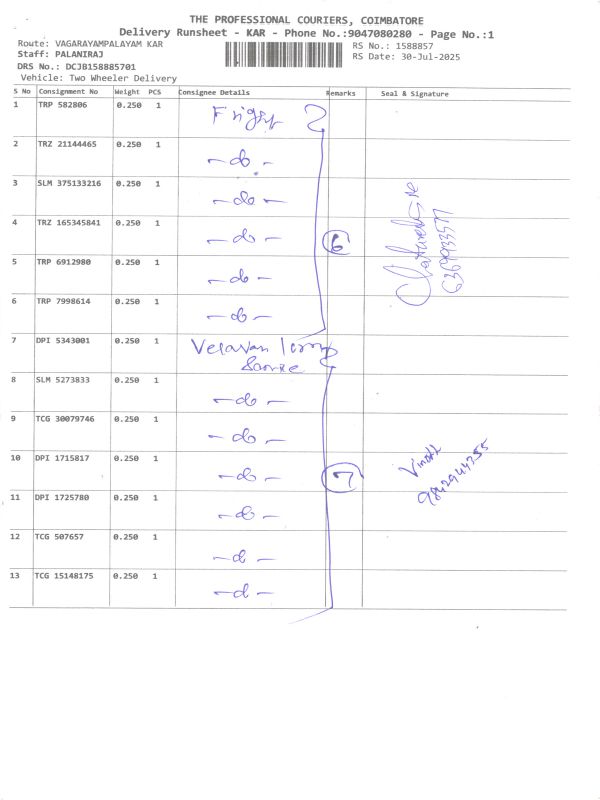 THE PROFESSIONAL COURIERS, COIMBATORE
Delivery Runsheet - KAR - Phone No.:9047080280 - Page No.:1
Route: VAGARAYAMPALAYAM KAR
RS No.: 1588857
Staff: PALANIRAJ
RS Date: 30-Jul-2025
DRS No.: DCJB158885701
Vehicle: Two Wheeler Delivery
S No Consignment No Weight PCS Consignee Details Remarks Seal & Signature
1 TRP 582806 0.250 1
2 TRZ 21144465 0.250 1 -do-
3 SLM 375133216 0.250 1 -do-
4 TRZ 165345841 0.250 1 -do- 6
5 TRP 6912980 0.250 1 -do-
6 TRP 7998614 0.250 1 -do-
7 DPI 5343001 0.250 1 Velavan
8 SLM 5273833 0.250 1 -do-
9 TCG 30079746 0.250 1 -do-
10 DPI 1715817 0.250 1 -do- 7
Vinoth
9842944355
11 DPI 1725780 0.250 1 -do-
12 TCG 507657 0.250 1 -do-
13 TCG 15148175 0.250 1 -do-